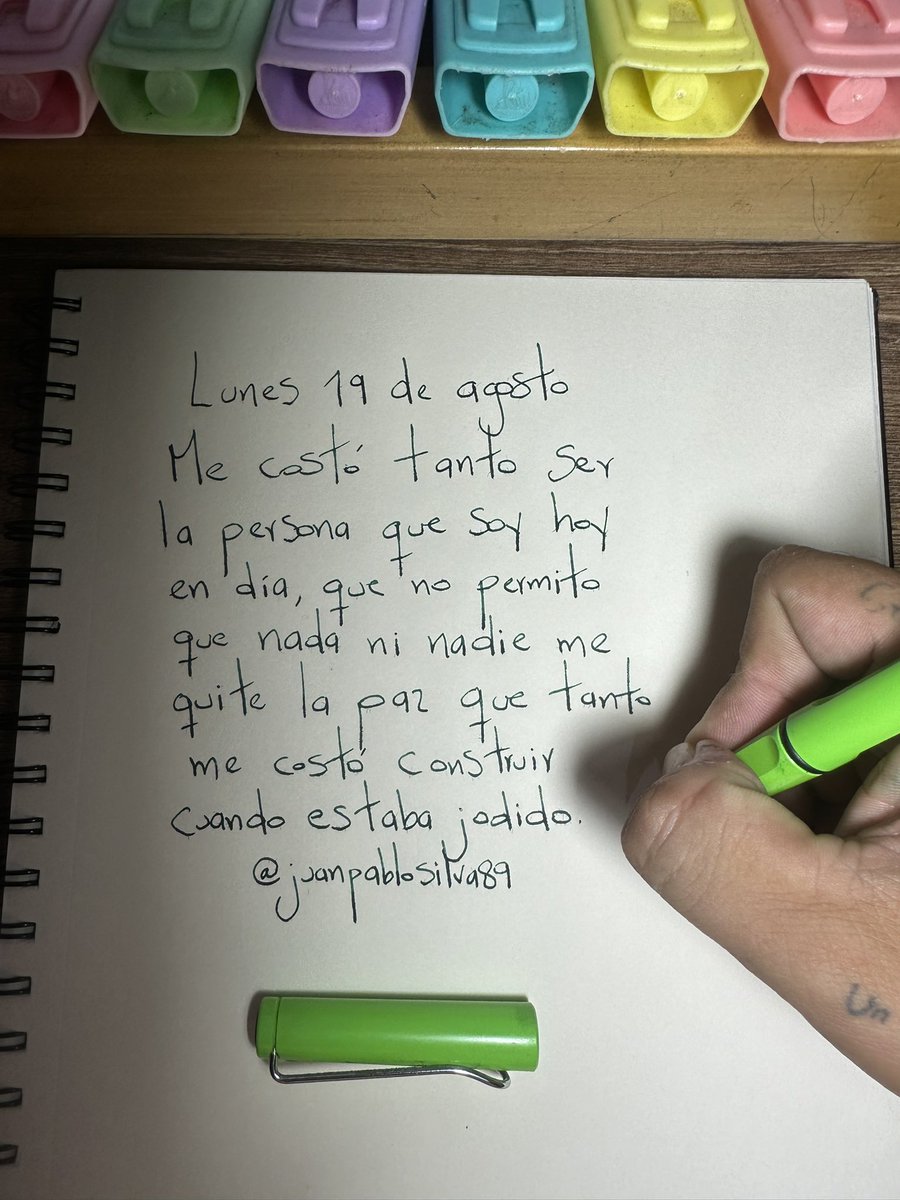 Lunes 19 de agosto
Me costó tanto ser
la persona que soy hoy
en día, que no permito
que nada ni nadie me
quite la paz que tanto
me costó construir
cuando estaba jodido.
@juanpablosilva89
Un